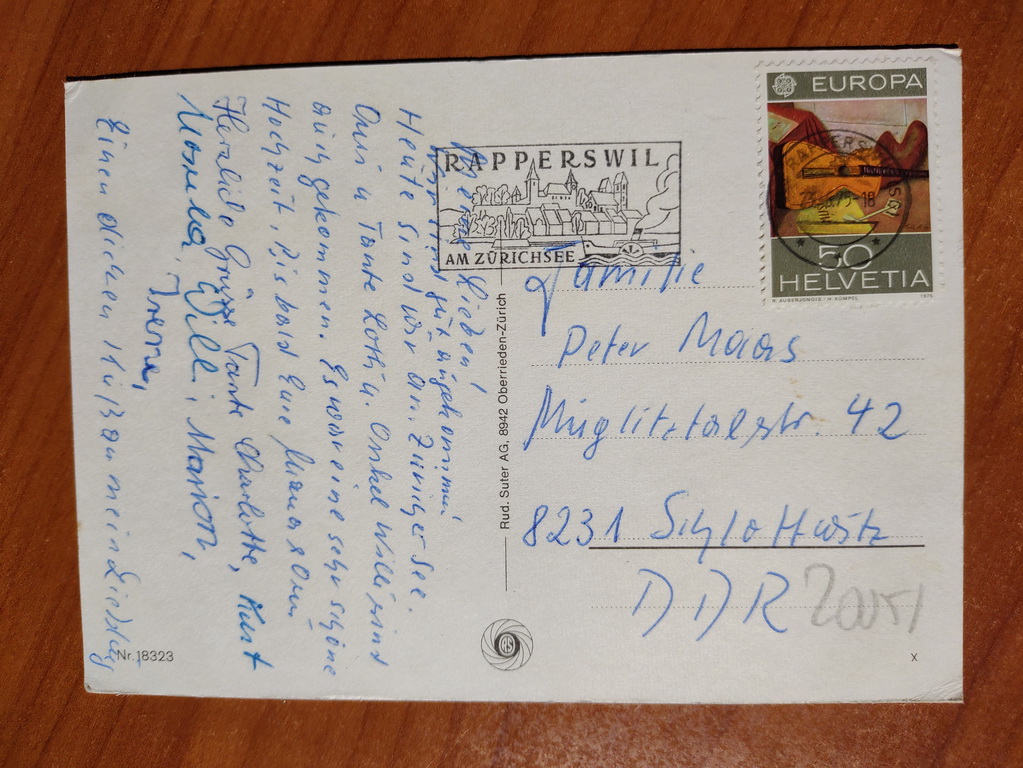 Meine Lieben!
Wir sind gut angekommen
Heute sind wir an. Züricher See.
Omi u Tante Lotti u. Onkel Willi sind
auch gekommen. Es war eine sehr schöne
Hochzeit. Bis bald Eure Mama & Omi
Herzliche Grüsse Tante Charlotte, Kurt
Willi, Marion,
Irena,
Einen dicken
RAPPERSWIL
AM ZÜRICHSEE
EUROPA
-18
50
HELVETIA
R. AUBERJONOIS · H. KÜMPEL
1975
Familie
Peter Maas
Müglitztalstr. 42
8231 Schlottwitz
DDR
Rud. Suter AG, 8942 Oberrieden-Zürich
Nr. 18323
x